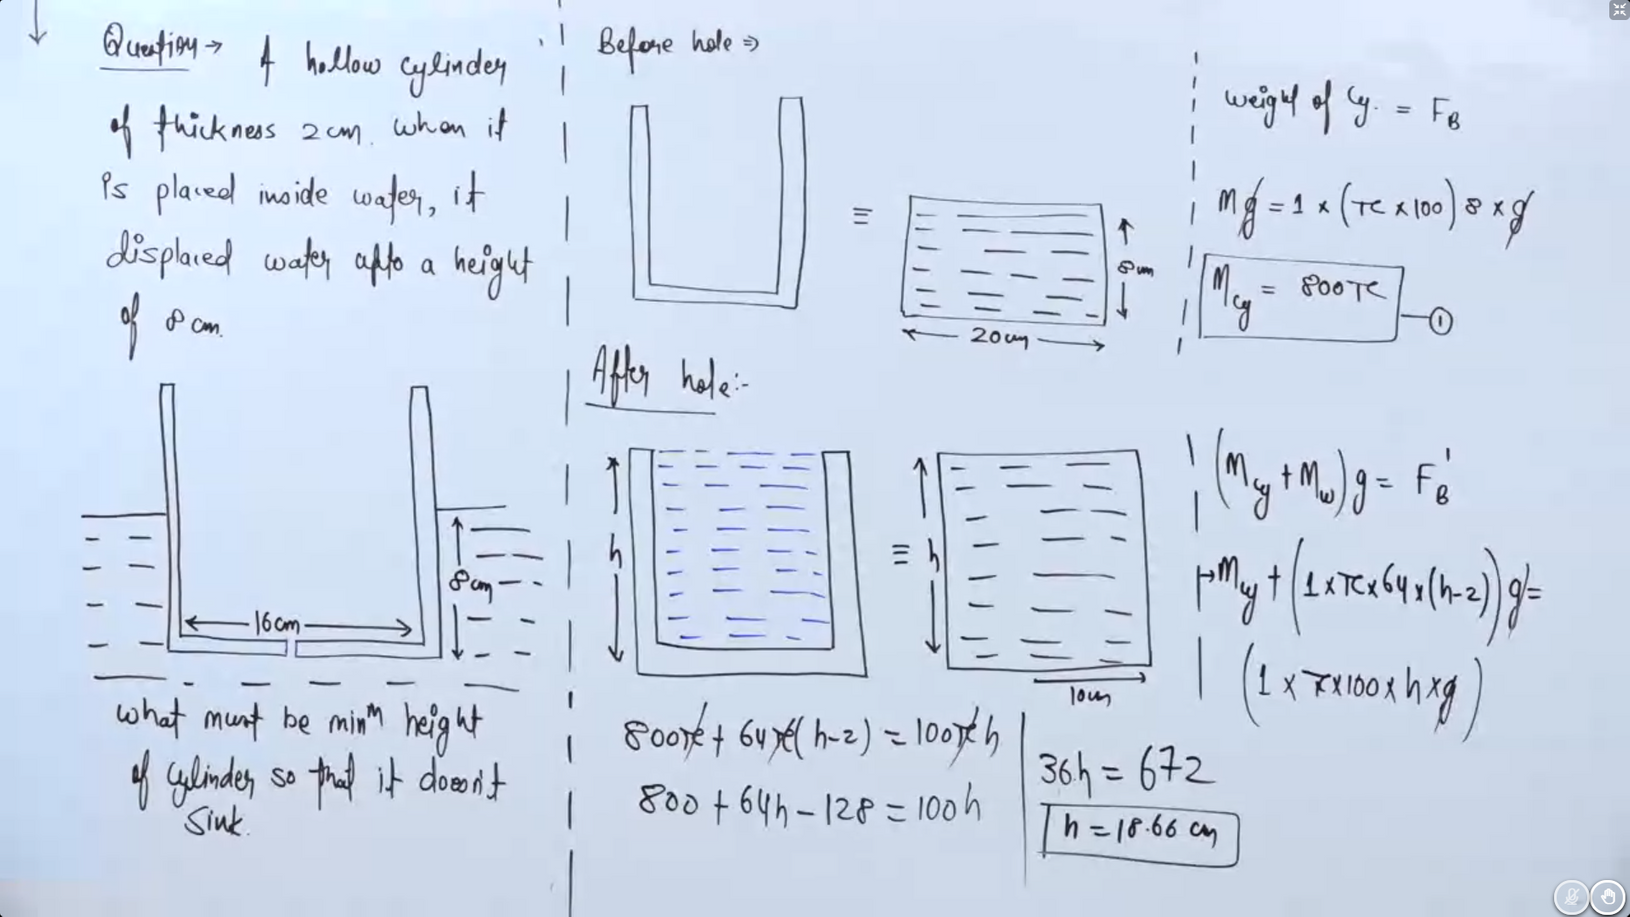 Question → A hollow cylinder
of thickness 2cm. when it
is placed inside water, it
displaced water upto a height
of 8 cm.
16cm
8cm
what must be minᵐ height
of cylinder so that it doesn't
sink.
Before hole ⇒
≡
8cm
20cm
weight of Cy. = F_B
Mg = 1 × (π × 100) 8 × g
M_cy = 800π
①
After hole:-
h
≡
h
10cm
(M_cy + M_w) g = F_B'
M_cy + (1 × π × 64 × (h-2)) g =
(1 × π × 100 × h × g)
800π + 64π(h-2) = 100π h
800 + 64h - 128 = 100h
36h = 672
h = 18.66 cm